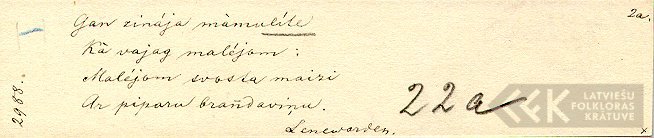 2a.
Gan zināja māmulīte
Kā vajag malējam:
Malējam svosta maizi
Ar piparu brandaviņu.
Lenewarden.
2988.
22a
x
LATVIEŠU
FOLKLORAS
KRĀTUVE